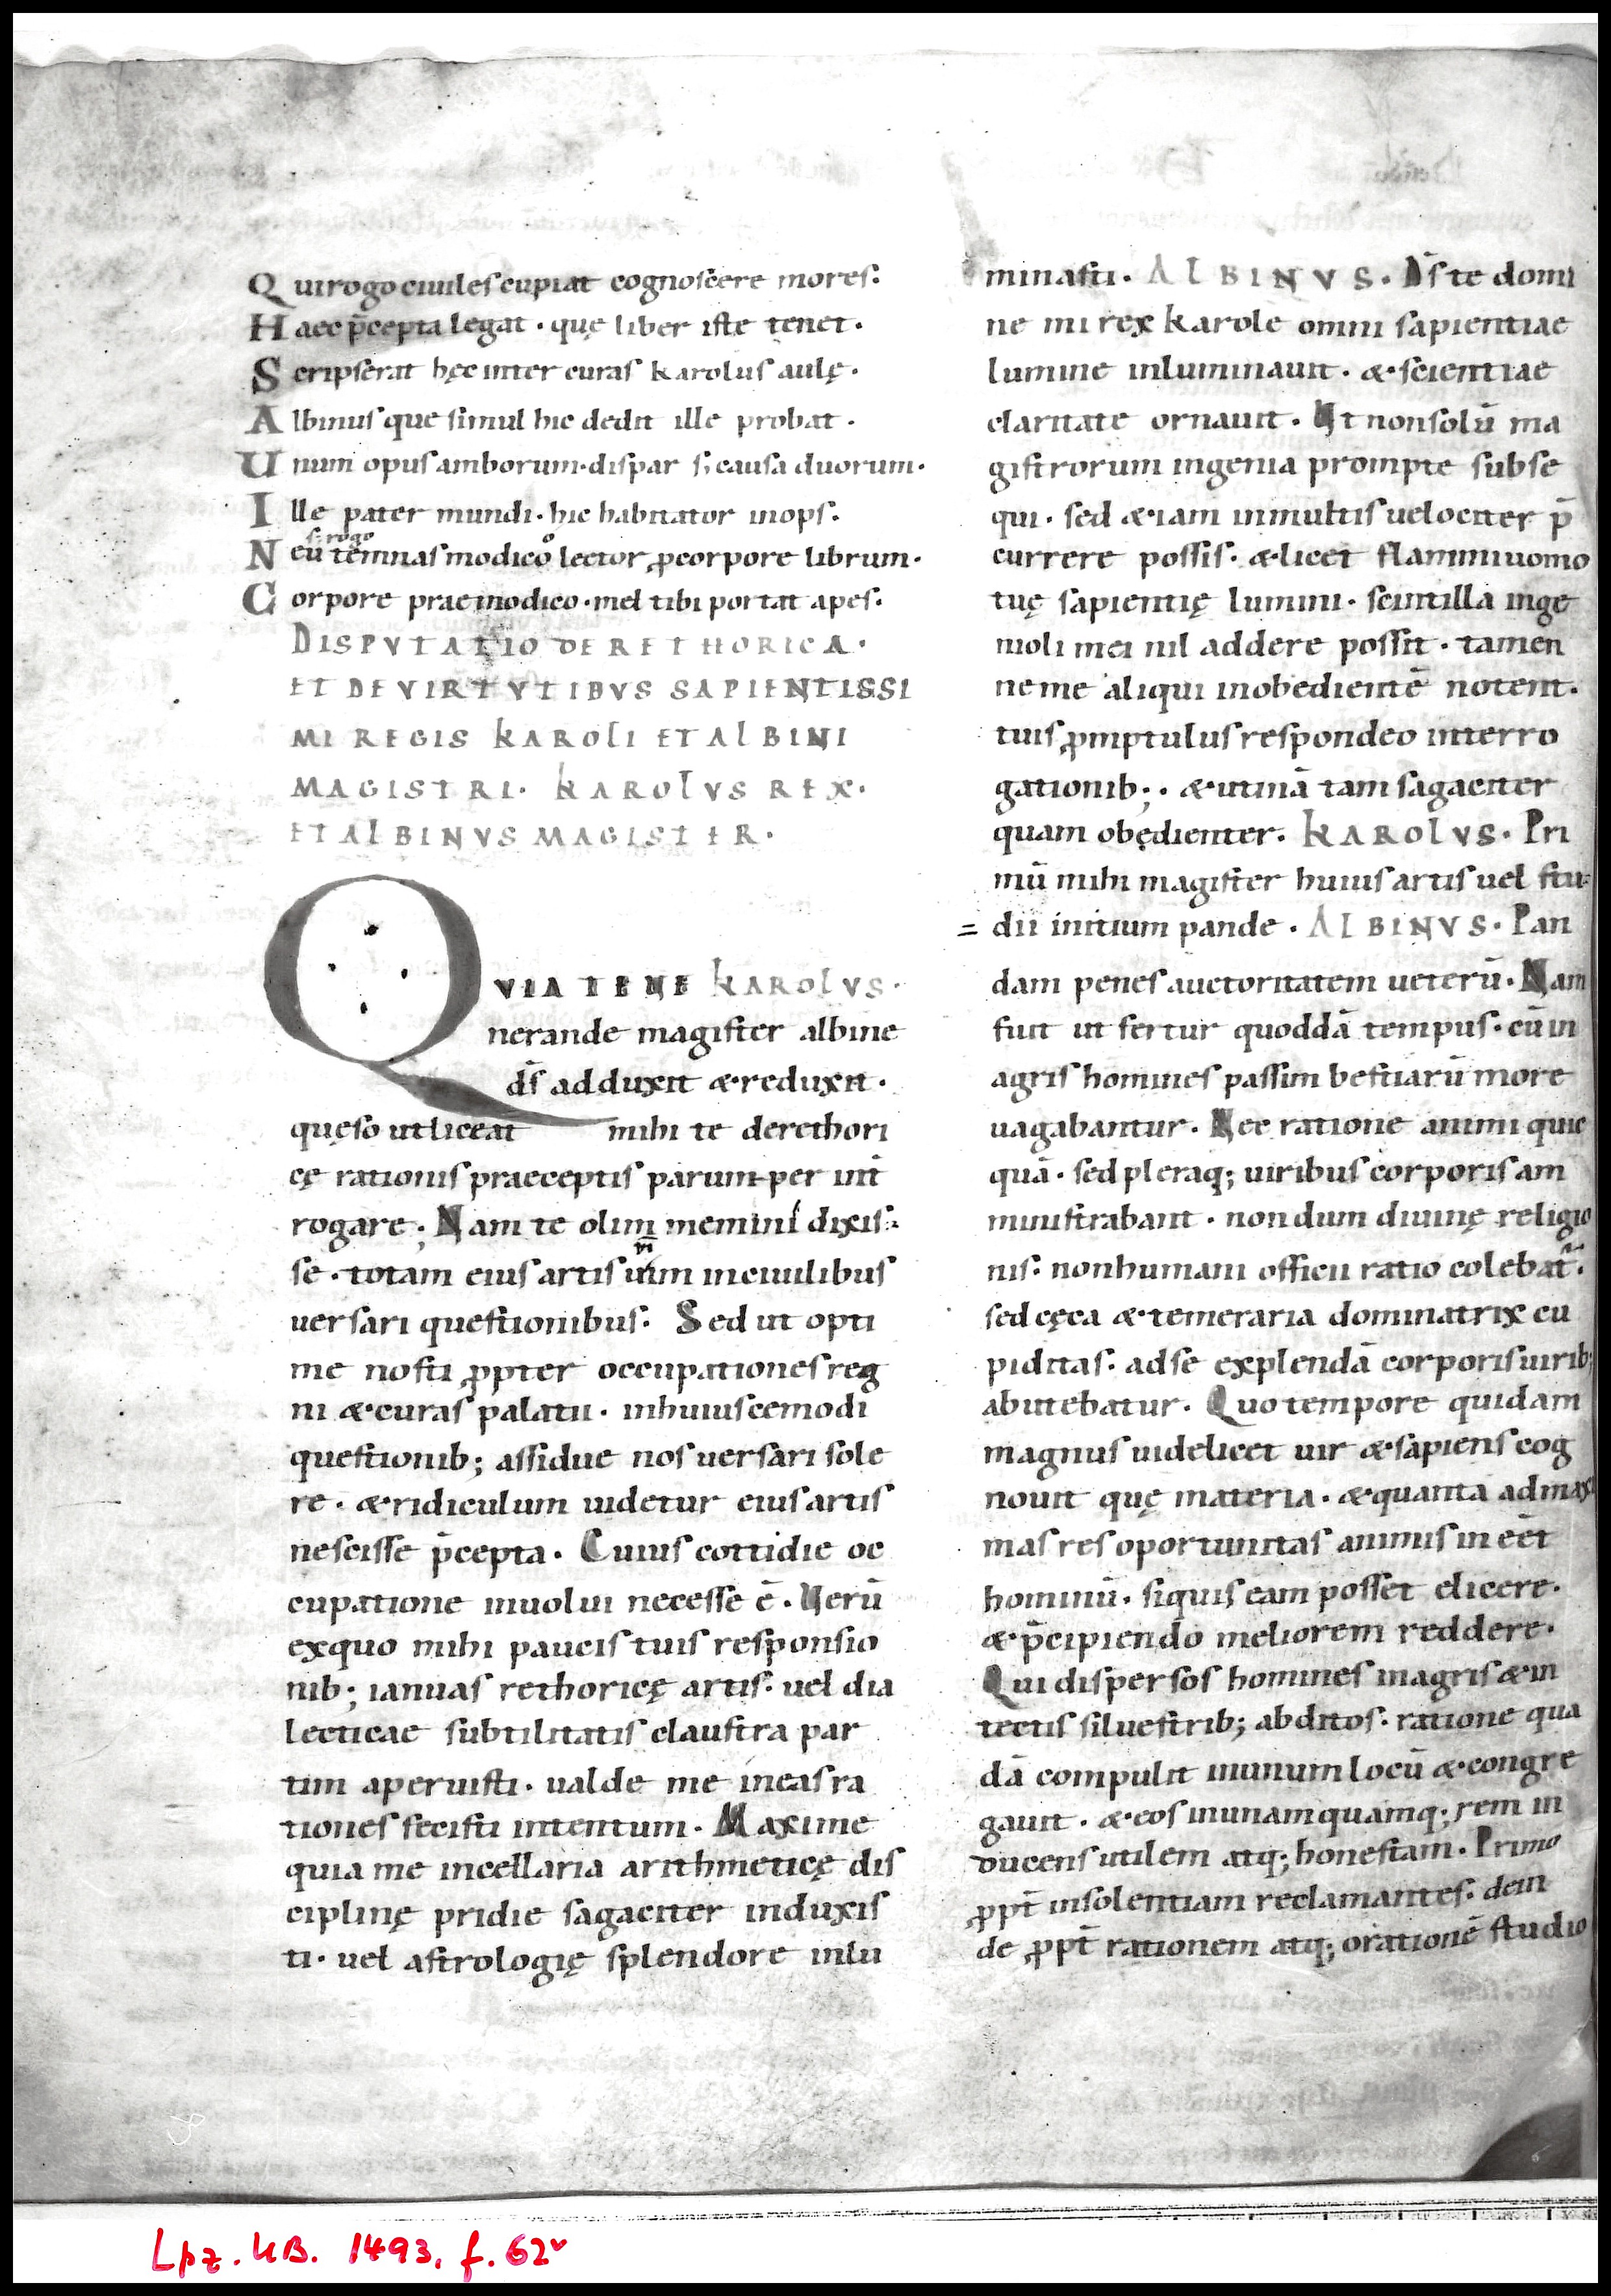 Qui rogo ciuiles cupiat cognoscere mores.
Haec p̄cepta legat · quę liber iste tenet ·
Scripserat hęc inter curas karolus aulę ·
Albinusque simul hic dedit ille probat ·
Unum opus amborum · dispar s; causa duorum ·
Ille pater mundi · hic habitator inops.
s. rogo o
Neu temnas modico lector ꝓcorpore librum ·
Corpore praemodico · mel tibi portat apes.
DISPVTATIO DE RETHORICA ·
ET DE VIRTVTIBVS SAPIENTISSI
MI REGIS KAROLI ET ALBINI
MAGISTRI · KAROLVS REX ·
ET ALBINVS MAGISTER ·
QVIA TE NE KAROLVS ·
nerande magister albine
d̄s adduxit & reduxit ·
quęso ut liceat mihi te de rethori
cę rationis praeceptis parumper int̄
rogare; Nam te olim memini dixis
m̄
se · totam eius artis uim in ciuilibus
uersari questionibus. Sed ut opti
me nosti ꝓpter occupationes reg
ni & curas palatii · in huiuscemodi
questionib; assidue nos uersari sole
re · & ridiculum uidetur eius artis
nescisse p̄cepta · Cuius cottidie oc
cupatione inuolui necesse ē · Uerū
ex quo mihi paucis tuis responsio
nib; ianuas rethoricę artis. uel dia
lecticae subtilitatis claustra par
tim aperuisti · ualde me in eas ra
tiones fecisti intentum · Maxime
quia me in cellaria arithmeticę dis
ciplinę pridie sagaciter induxis
ti · uel astrologię splendore inlu
minasti · ALBINVS · D̄s te domi
ne mi rex karole omni sapientiae
lumine inluminauit · & scientiae
claritate ornauit · Ut non solū ma
gistrorum ingenia prompte subse
qui · sed &iam in multis uelociter p̄
currere possis. & licet flammiuomo
tuę sapientię lumini · scintilla inge
nioli mei nil addere possit · tamen
ne me aliqui inobedientē notent ·
tuis ꝓmptulus respondeo interro
gationib; · & utinā tam sagaciter
quam obędienter. KAROLVS · Pri
mū mihi magister huius artis uel stu
= dii initium pande · ALBINVS · Pan
dam penes auctoritatem ueterū · Nam
fuit ut fertur quoddā tempus · cū in
agris homines passim bestiarū more
uagabantur · Nec ratione animi quic
quā · sed pleraq; uiribus corporis am
ministrabant · nondum diuinę religio
nis. non humani officii ratio colebat̄.
sed cęca & temeraria dominatrix cu
piditas. ad se explendā corporis uirib;
abutebatur · Quo tempore quidam
magnus uidelicet uir & sapiens cog
nouit quę materia · & quanta ad maxi
mas res oportunitas animis in eēt
hominū · siquis eam posset elicere ·
& p̄cipiendo meliorem reddere ·
Qui dispersos homines in agris & in
tectis siluestrib; abditos. ratione qua
dā compulit in unum locū & congre
gauit · & eos in unam quamq; rem in
ducens utilem atq; honestam · Primo
ꝓpt̄ insolentiam reclamantes. dein
de ꝓpt̄ rationem atq; orationē studio
Lpz. UB. 1493, f. 62v